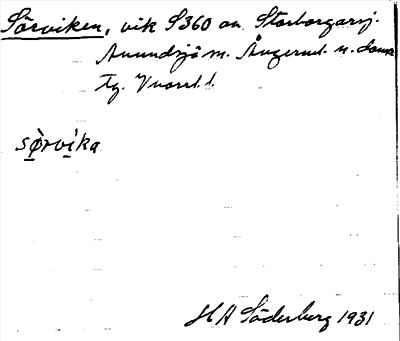 Sörviken, vik S360 av Storborgarsj.
Anundsjö sn. Ångerml. n. doms
Tg. Vuorrt. l.
sø̀rvíka
H A Söderberg 1931